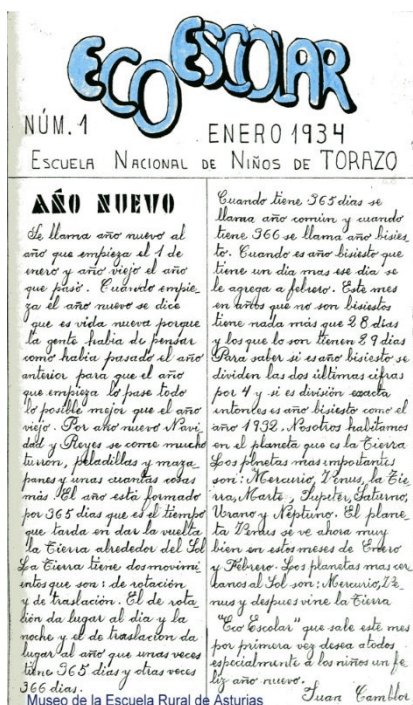 ECO ESCOLAR
NÚM. 1
ENERO 1934
ESCUELA NACIONAL DE NIÑOS DE TORAZO
AÑO NUEVO
Se llama año nuevo al
año que empieza el 1 de
enero y año viejo el año
que pasó. Cuando empie_
za el año nuevo se dice
que es vida nueva porque
la gente habia de pensar
como habia pasado el año
anterior para que el año
que empieza lo pase todo
lo posible mejor que el año
viejo. Por año nuevo Navi
dad y Reyes se come mucho
turron, peladillas y maza_
panes y unas cuantas cosas
más. El año está formado
por 365 dias que es el tiempo
que tarda en dar la vuelta
la Tierra alrededor del Sol
La Tierra tiene dos movimi_
entos que son: de rotación
y de traslación. El de rota_
ción da lugar al dia y la
noche y el de traslación da
lugar al año que unas veces
tiene 365 dias y otras veces
366 dias.
Cuando tiene 365 dias se
llama año común y cuando
tiene 366 se llama año bisies_
to. Cuando es año bisiesto que
tiene un dia mas ese dia se
le agrega a febrero. Este mes
en años que no son bisiestos
tiene nada más que 28 dias
y los que lo son tienen 29 dias
Para saber si es año bisiesto se
dividen las dos últimas cifras
por 4 y si es división exacta
entonces es año bisiesto como el
año 1932. Nosotros habitamos
en el planeta que es la Tierra
Los plnetas mas importantes
son: Mercurio, Venus, la Tie_
rra, Marte, Jupiter, Saturno,
Urano y Neptuno. El plane_
ta Venus se ve ahora muy
bien en estos meses de Enero
y Febrero. Los planetas mas cer_
canos al Sol son: Mercurio, Ve_
nus y despues vine la Tierra
"Eco Escolar" que sale este mes
por primera vez desea atodos
especialmente á los niños un fe_
liz año nuevo.
Juan Camblor
Museo de la Escuela Rural de Asturias